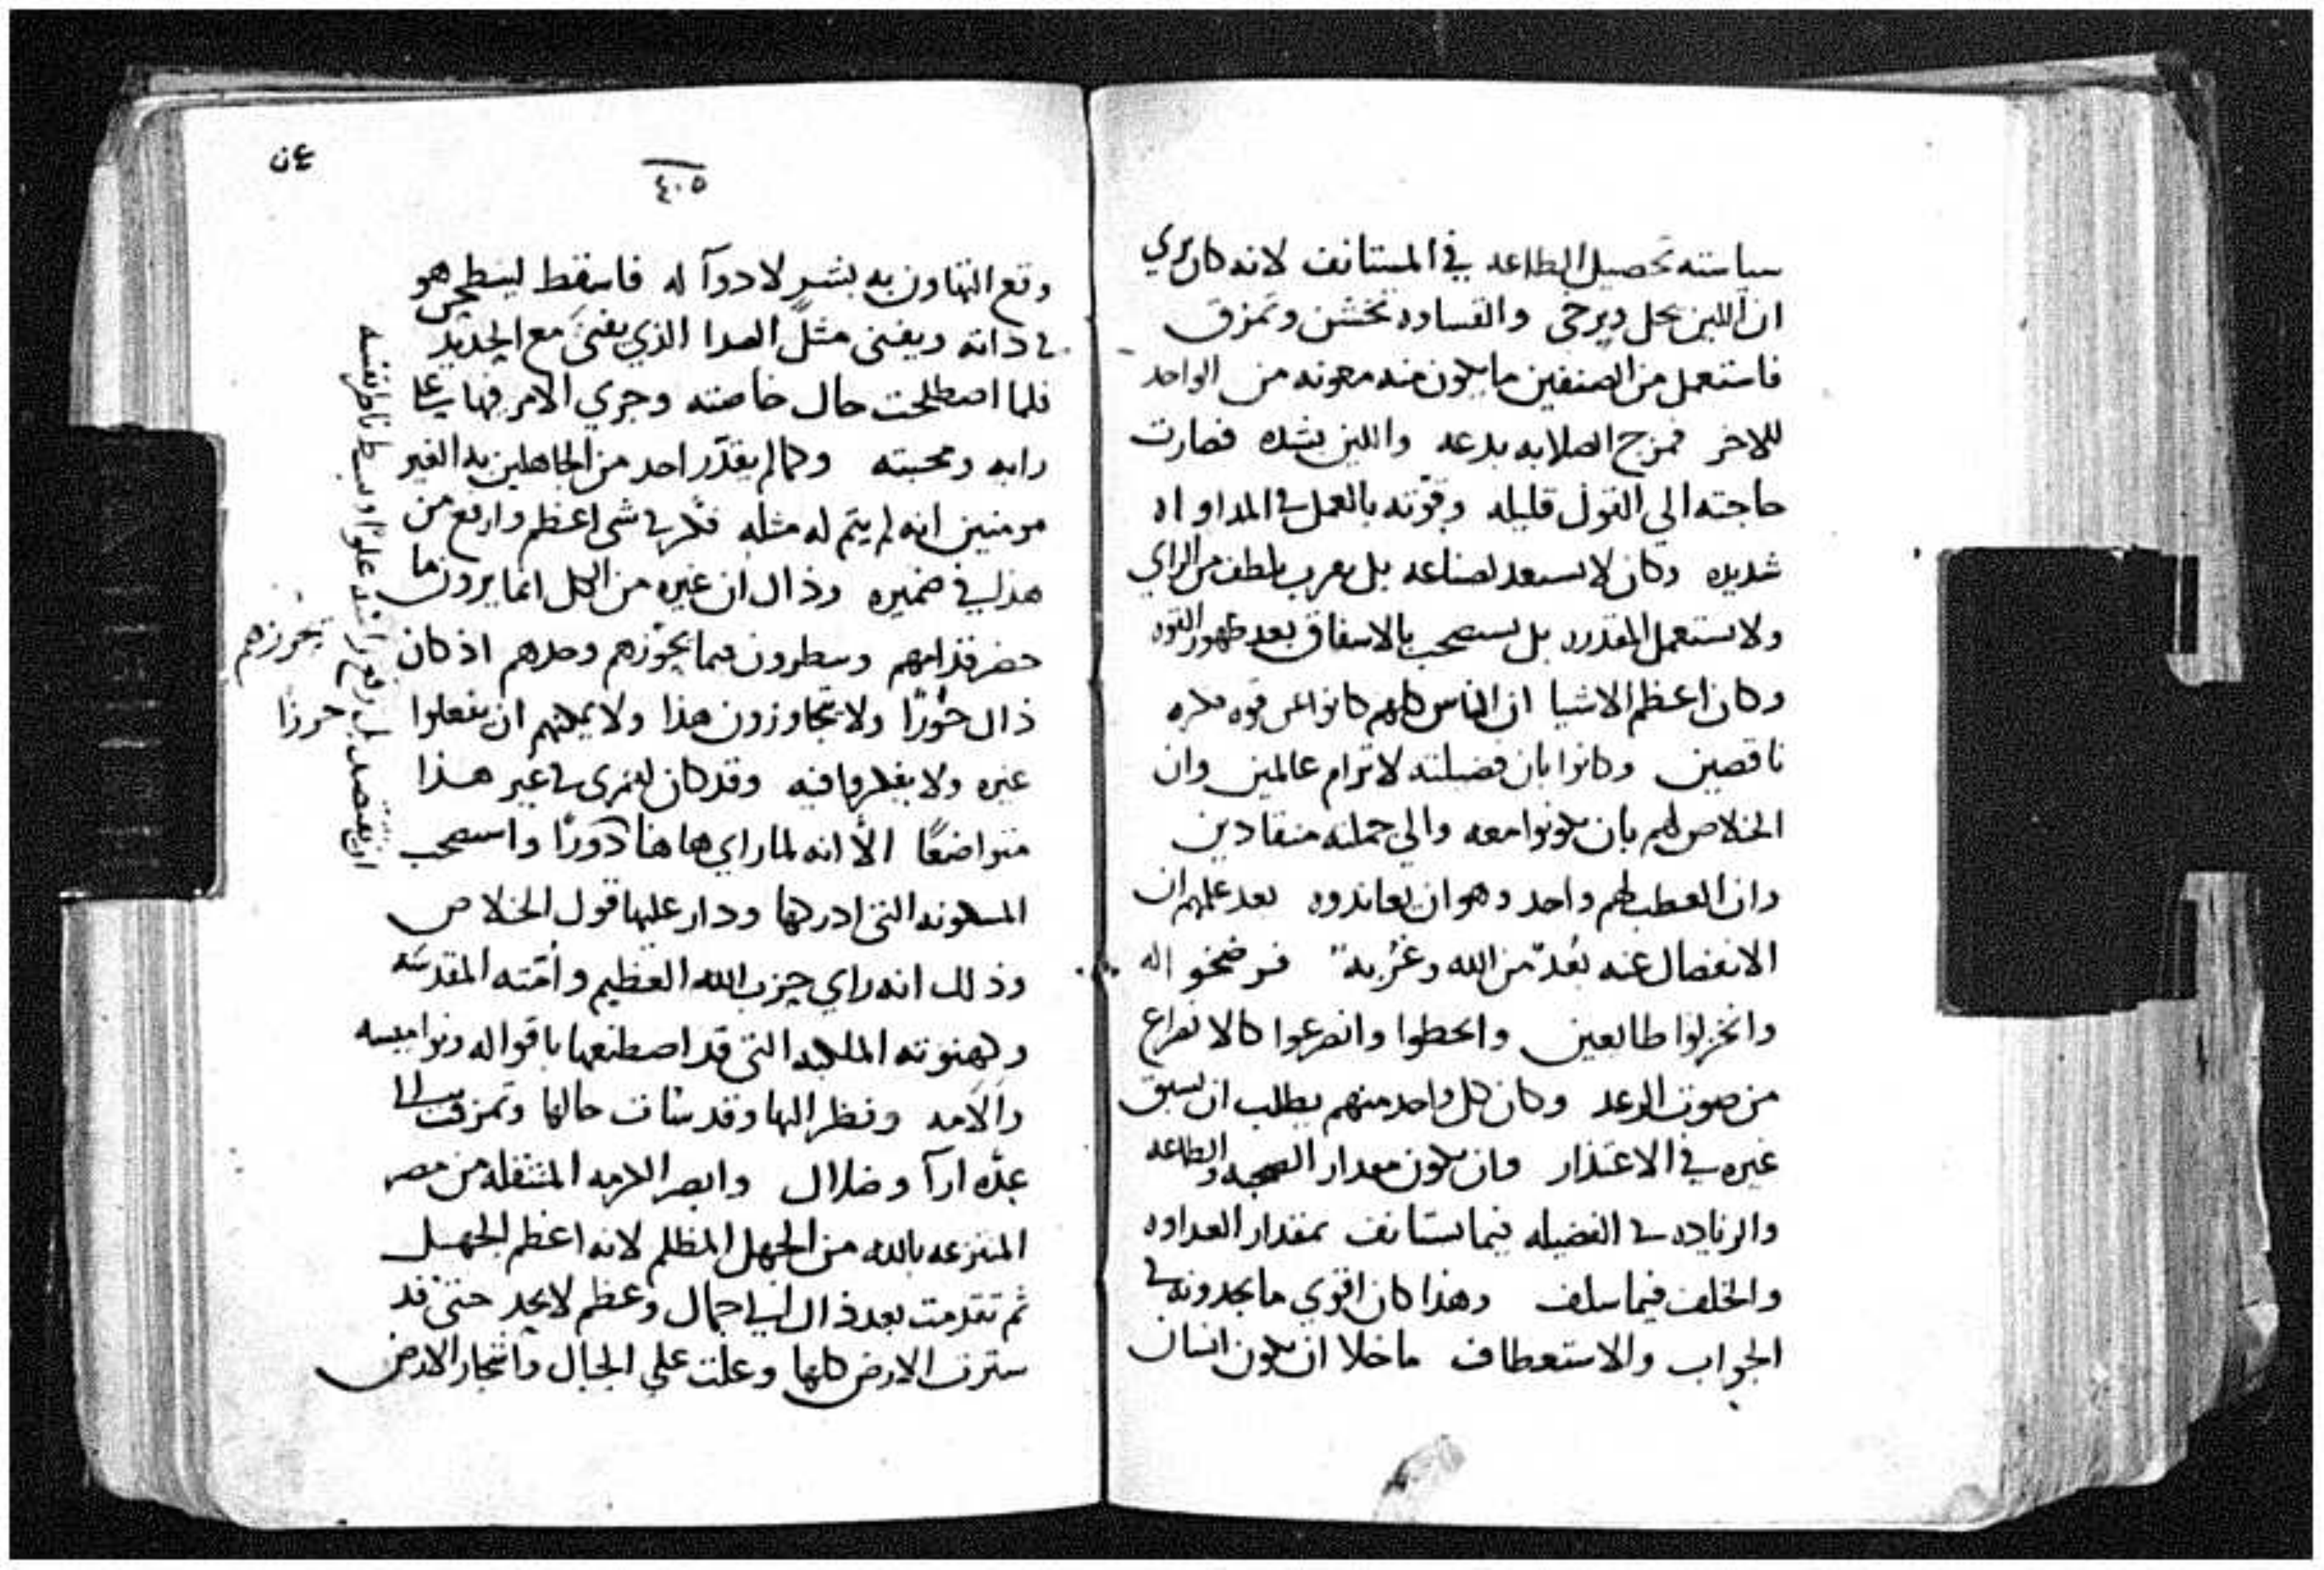 سياسته تحصيل الطاعه في المستانف لانه كان يري
ان اللين يحل ويرخى والقساوه تخشن وتمزق
فاستعمل من الصنفين ما يكون منه معونه من الواحد
للاخر فمزج الصلابه بدعه واللين بشده فصارت
حاجته الي القول قليله وقوته بالعمل في المداواه
شديده وكان لا يستعبد لصناعه بل بلطف من الراي
ولا يستعمل المقدره بل يستصحب بالاشفاق بعد ظهور القوه
وكان اعظم الاشيا ان الناس كلهم كانوا عن قوه فكره
ناقصين وكانوا بان فضيلته لا ترام عالمين وان
الخلاص لهم بان يكونوا معه والي جملته منقادين
وان العطب لهم واحد وهو ان يعاندوه بعد علمهم ان
الانفصال عنه بُعدٌ من الله وغربة فرضخوا له
وانخزلوا طايعين وانحطوا وانصرعوا كالانصراع
من صوت الرعد وكان كل واحد منهم يطلب ان يسبق
غيره في الاعتذار وان يكون مقدار الصحبه والطاعه
والزياده في الفضيله فيما يستانف بمقدار العداوه
والخلف فيما سلف وهذا كان اقوي ما يجدونه في
الجواب والاستعطاف ما خلا ان يكون انسان
٤٠٥
وقع التهاون به بشر لا دوآ له فاسقط لينطحن هو
في ذاته ويفنى مثل الصدا الذي يفنى مع الحديد
فلما اصطلحت حال خاصته وجري الامر فيها علي
رايه ومحبته وكما لم يقدر احد من الجاهلين به الغير
مومنين انه لم يتم له مثله فكر في شي اعظم وارفع من
هذا في ضميره وذاك ان غيره من الكل انما يرون ما
حضر قدامهم وينظرون فيما يحوزهم وحدهم اذ كان
ذاك حوزًا ولا يتجاوزون هذا ولا يمكنهم ان يفعلوا
غيره ولا يفكروا فيه وقد كان لعمري في غير هذا
متواضعًا الا انه لما راي ها هنا واستصحب
المسكونه التي ادركها ودار عليها قول الخلاص
وذلك انه راي حزب الله العظيم وامّته المقدسه
وكهنوته الملكيه التي قد اصطنعها باقواله ونواميسه
والامه ونظر اليها وقد سات حالها وتمزقت الي
عدّه ارآ وضلال وابصر الكرمه المنتقله من مصر
المنتزعه بالله من الجهل المظلم لانه اعظم الجهل
ثم تقدمت بعد ذاك الي جمال وعظم لا يحد حتى قد
سترت الارض كلها وعلت علي الجبال واشجار الارض
يحرزهم
حرزًا
ان يقتصد بل رفع راسه علوًا وبسط ناظر نفسه